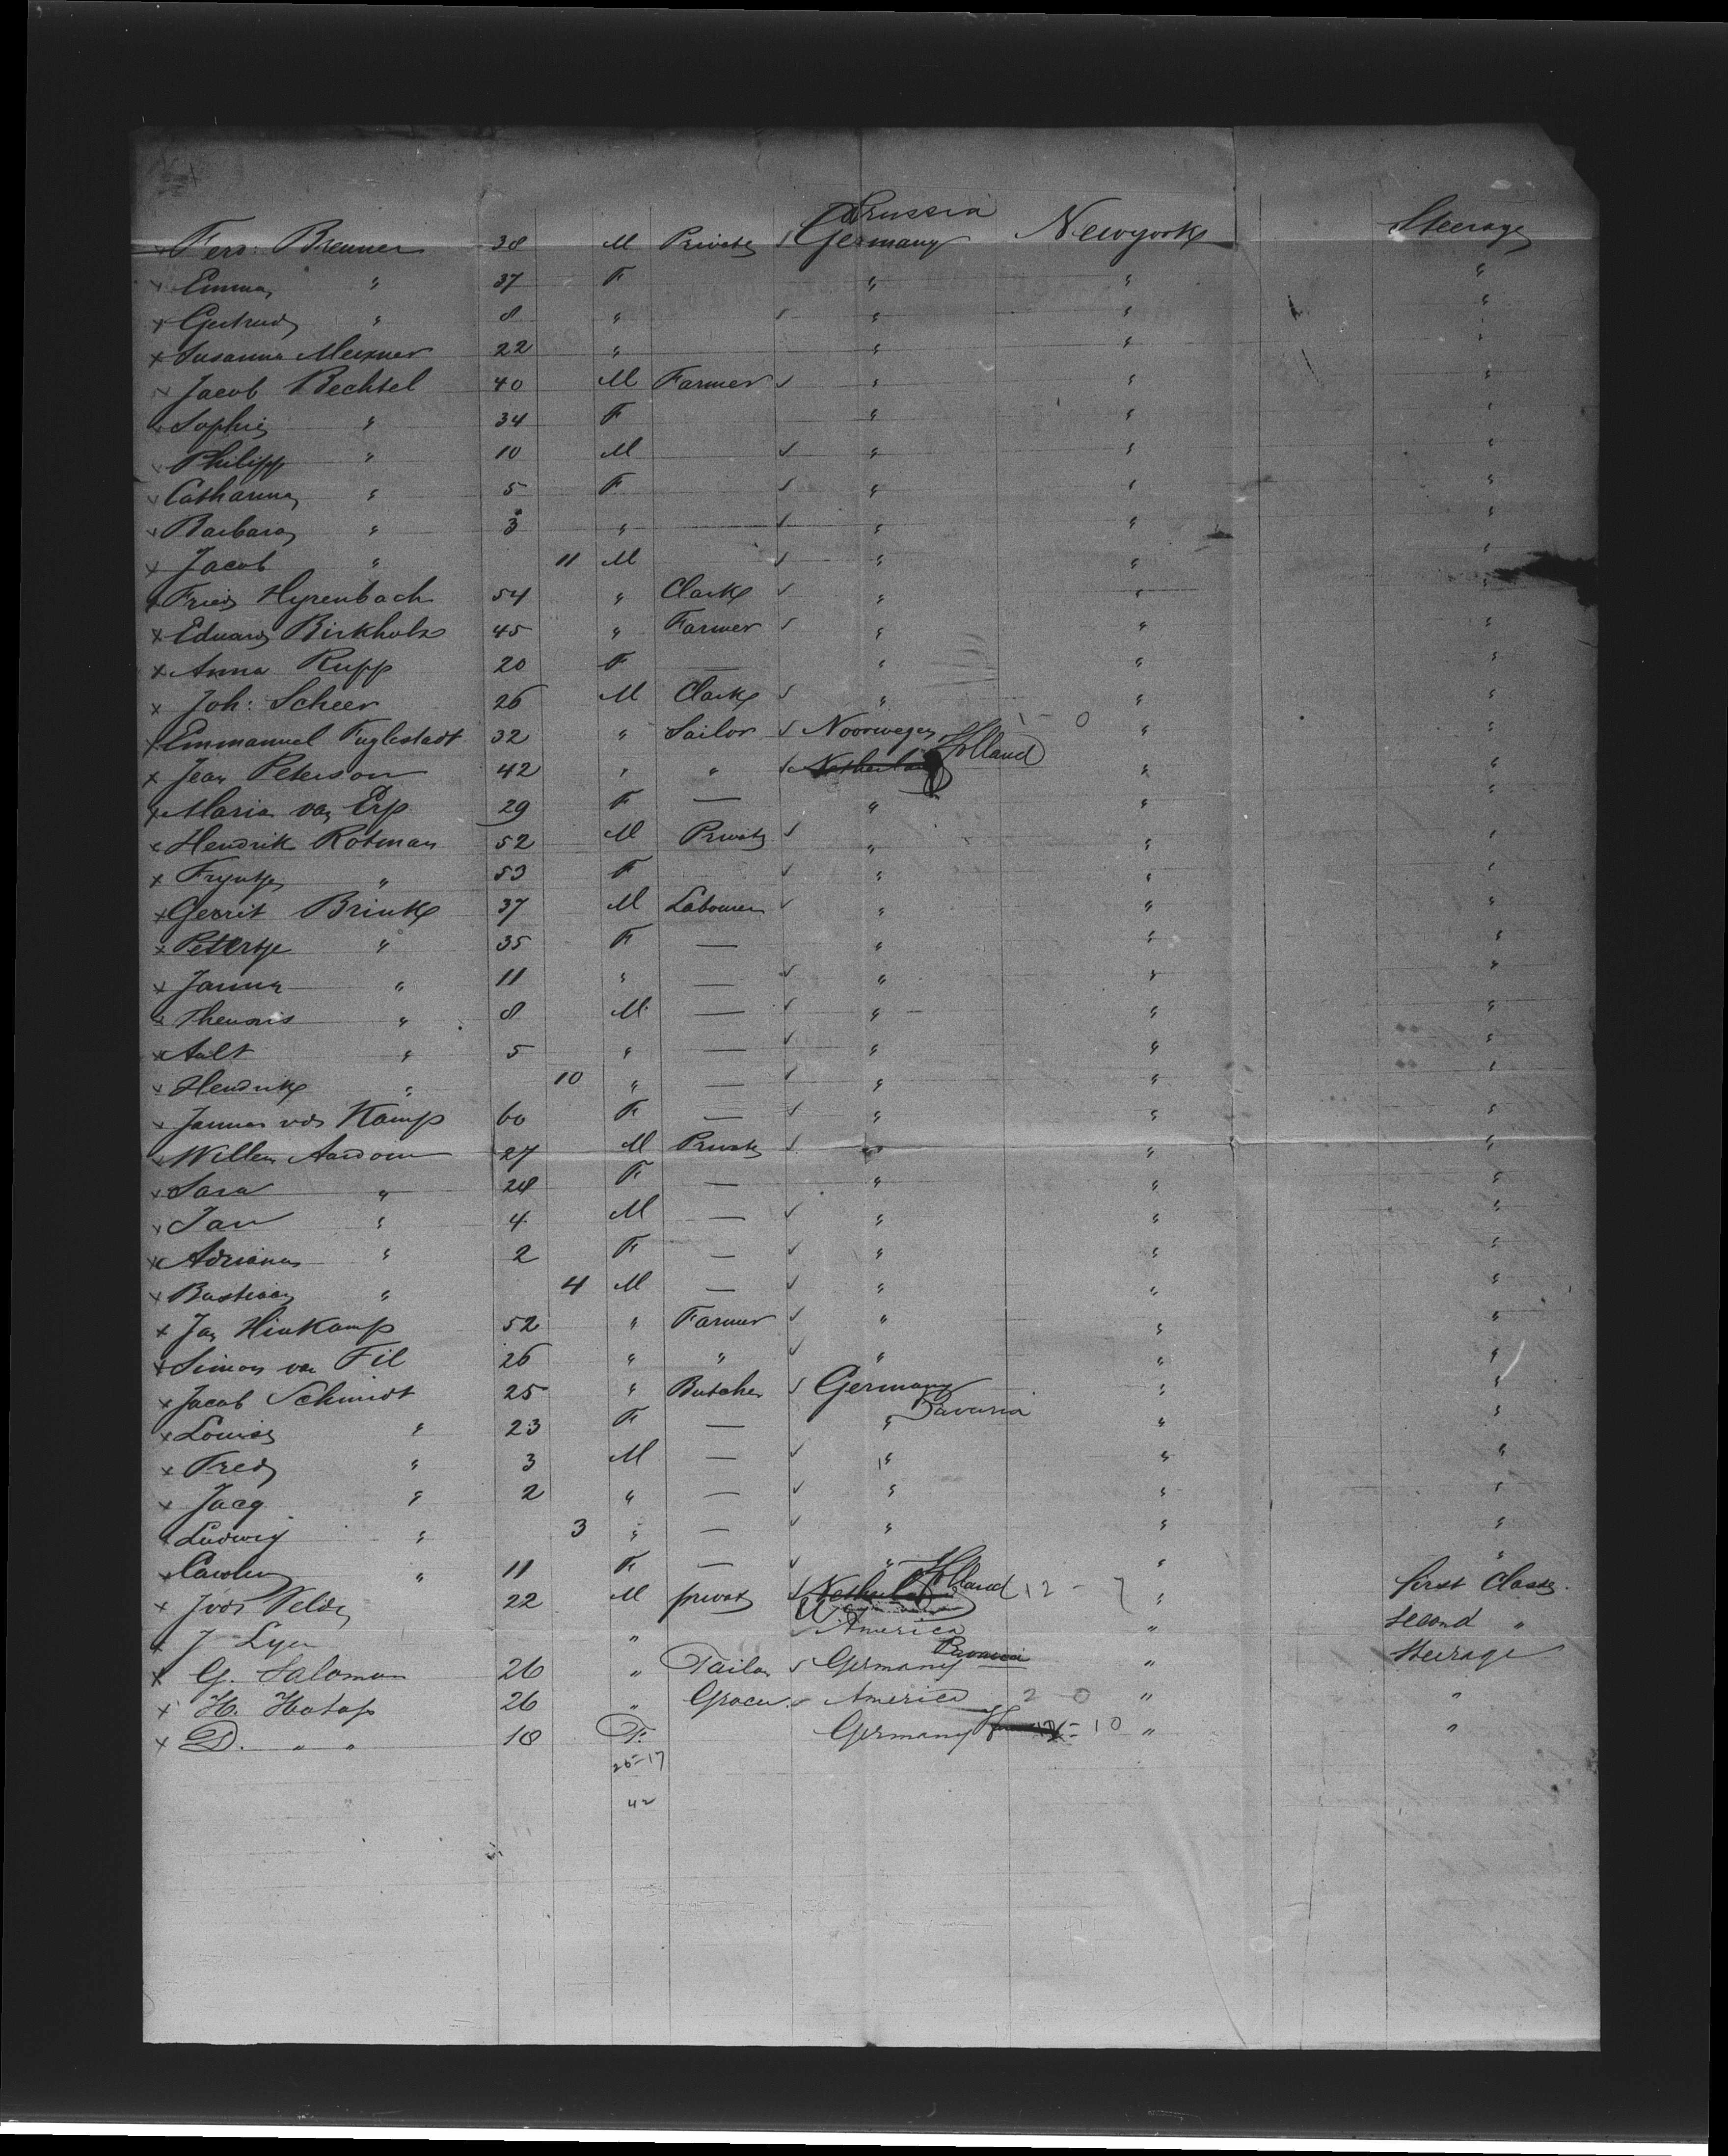 Prussia
x Ferd: Brenner 38 M Private ✓ Germany Newyork Steerage
x Emma " 37 F " " "
x Gertrud " 8 " ✓ " " "
x Susanna Meixner 22 " " " "
x Jacob Bechtel 40 M Farmer ✓ " " "
x Sophie " 34 F " " "
x Philipp " 10 M ✓ " " "
x Catharina " 5 F ✓ " " "
x Barbara " 3 " ✓ " " "
x Jacob " 11 M ✓ " " "
x Fried Hyrenbach 54 " Clark ✓ " " "
x Eduard Birkholz 45 " Farmer ✓ " " "
x Anna Rupp 20 F — " " "
x Joh: Scheer 26 M Clark ✓ " " "
x Emmanuel Fuglestadt 32 " Sailor ✓ Noorwegen 0 " "
x Jean Peterson 42 " " ✓ Netherland Holland " "
x Maria van Erp 29 F — " " "
x Hendrik Rotman 52 M Private ✓ " " "
x Fryntje " 53 F ✓ " " "
x Gerrit Brink 37 M Labourer ✓ " " "
x Petertje " 35 F — " " "
x Janna " 11 " — ✓ " " "
x Theunis " 8 M — ✓ " " "
x Aalt " 5 " — ✓ " " "
x Hendrik " 10 " — ✓ " " "
x Janna vd Kamp 60 F — ✓ " " "
x Willem Aardoom 27 M Private ✓ " " "
x Sara " 28 F — " " "
x Jan " 4 M — ✓ " " "
x Adriana " 2 F — ✓ " " "
x Bastiaan " 4 M — ✓ " " "
x Jan Hinkamp 52 " Farmer ✓ " " "
x Simon van Til 26 " " ✓ " " "
x Jacob Schmidt 25 " Butcher ✓ Germany " "
Bavaria
x Louise " 23 F — " " "
x Fred " 3 M — ✓ " " "
x Jacq " 2 " — ✓ " " "
x Ludwig " 3 " — ✓ " " "
x Carolin " 11 F — ✓ " " "
x J vd Velde 22 M private ✓ Netherland Holland 12 - 7 " first Class.
x J Lyer " ✓ America " second "
x G. Salomon 26 " Tailor ✓ Germany Bavaria " Steerage
x H. Hotop 26 " Grocer ✓ America 2 0 " "
x D. " " 18 F. Germany 10 " "
25-17
42